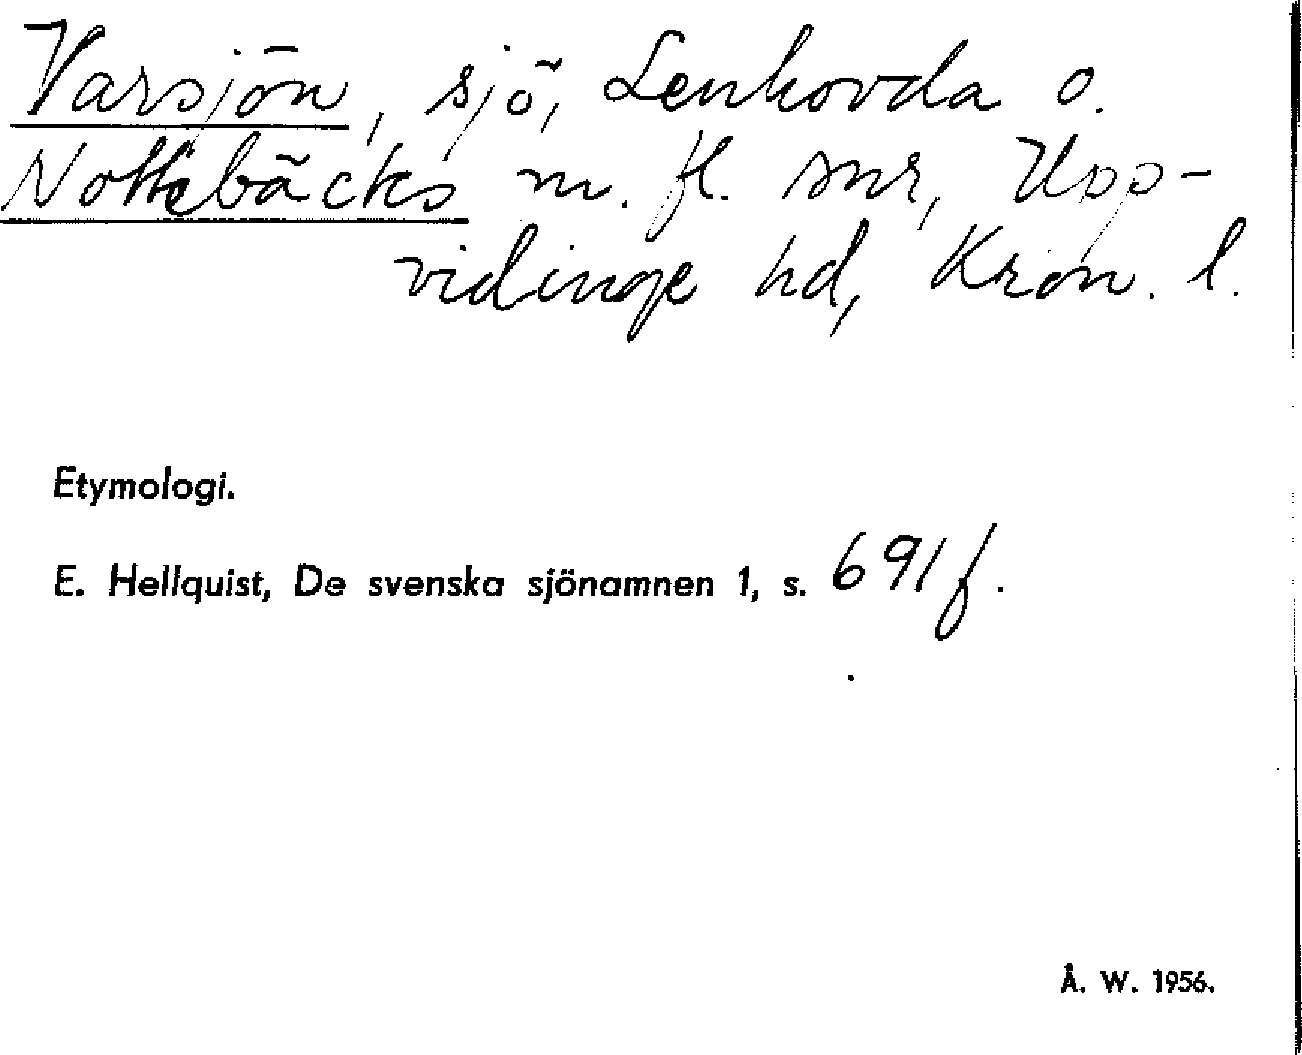 Varsjön, sjö, Lenhovda o.
Nottebäcks m. fl. snr, Upp-
vidinge hd, Kron. l.
Etymologi.
E. Hellquist, De svenska sjönamnen 1, s. 691 f.
Å. W. 1956.